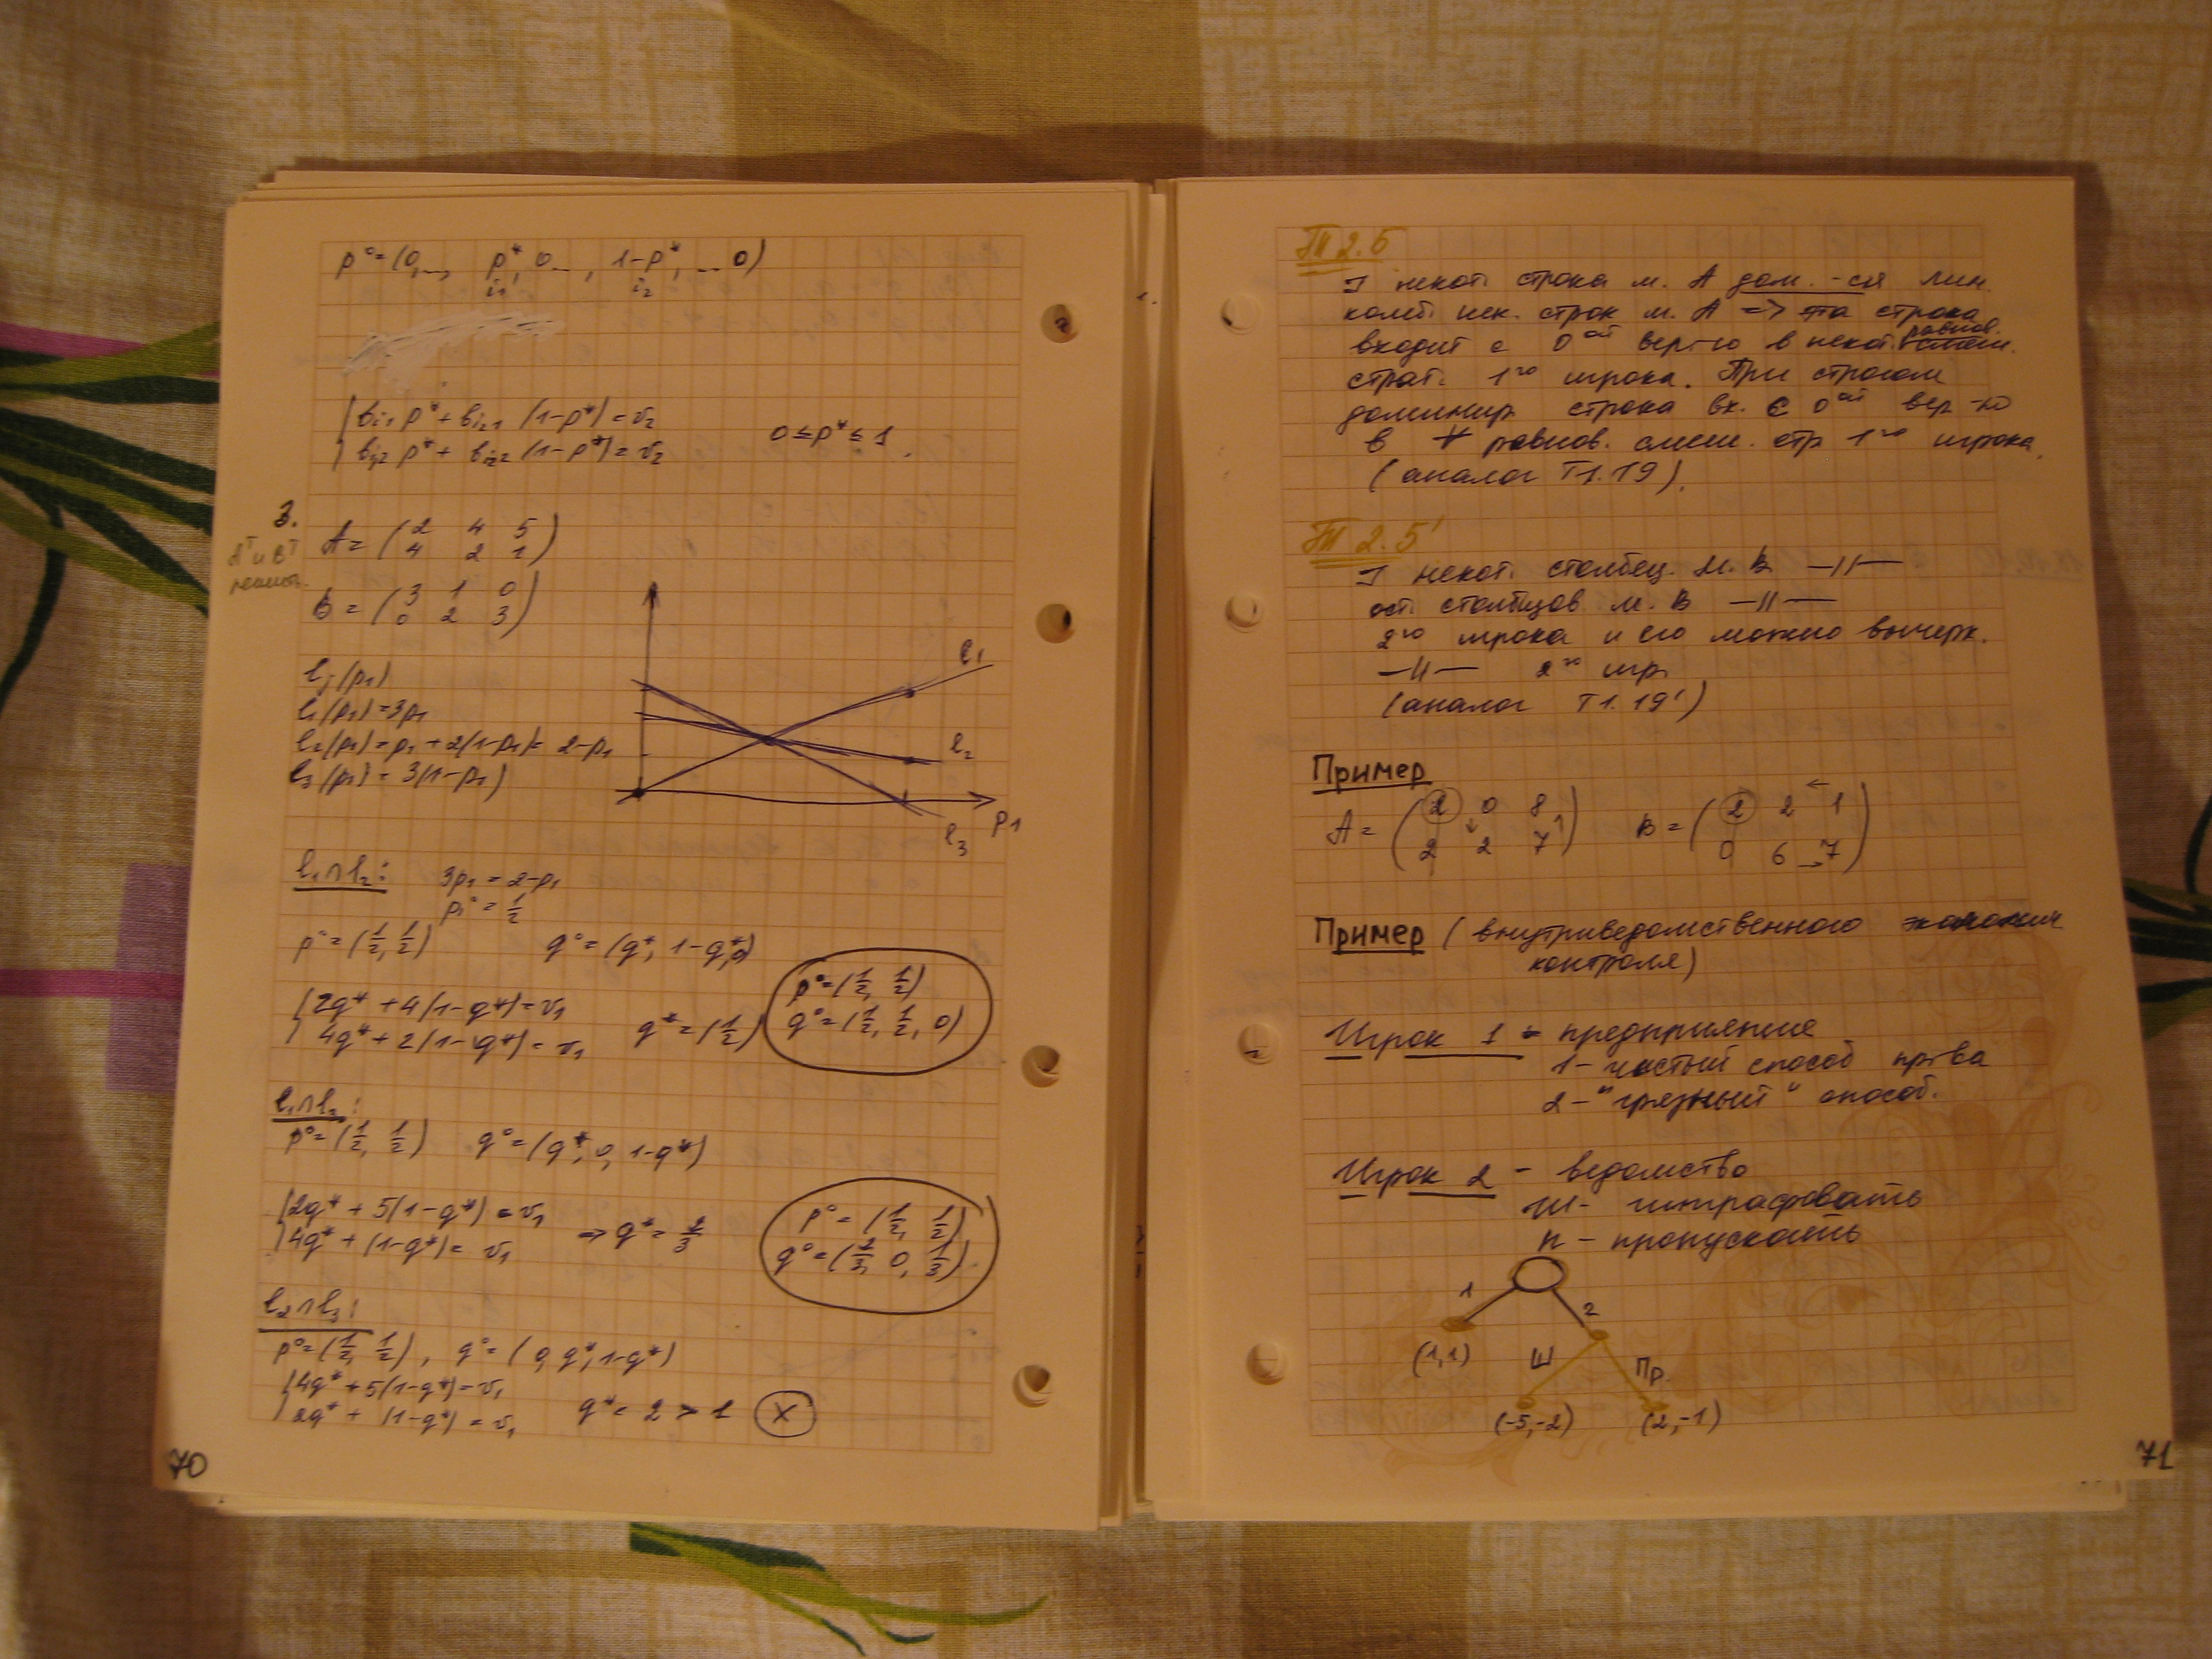 p° = (0,..., p*, 0..., 1-p*, ... 0)
i₁ i₂
{ в_i₁1 p* + в_i₂1 (1-p*) = v₂
{ в_i₁2 p* + в_i₂2 (1-p*) = v₂ 0 ≤ p* ≤ 1.
3.
Aᵀ и Bᵀ
A = (2 4 5
4 2 1)
B = (3 1 0
0 2 3)
l_j(p₁)
l₁(p₁) = 3p₁
l₂(p₁) = p₁ + 2(1-p₁) = 2-p₁
l₃(p₁) = 3(1-p₁)
l₁
l₂
l₃
p₁
l₁∩l₂:
3p₁ = 2-p₁
p₁° = 1/2
p° = (1/2, 1/2) q° = (q*, 1-q*, 0)
{ 2q* + 4(1-q*) = v₁
{ 4q* + 2(1-q*) = v₁ q* = (1/2)
p° = (1/2, 1/2)
q° = (1/2, 1/2, 0)
l₁∩l₂:
p° = (1/2, 1/2) q° = (q*, 0, 1-q*)
{ 2q* + 5(1-q*) = v₁
{ 4q* + (1-q*) = v₁ => q* = 2/3
p° = (1/2, 1/2)
q° = (2/3, 0, 1/3)
l₂∩l₃:
p° = (1/2, 1/2), q° = (0, q*, 1-q*)
{ 4q* + 5(1-q*) = v₁
{ 2q* + (1-q*) = v₁ q* = 2 > 1 (X)
70
Т 2.5
] некот. строка м. A дом.-ся лин.
комб. нек. строк м. A => эта строка
входит с 0ой вер-ю в некот. равнов. смеш.
страт. 1го игрока. При строгом
доминир. строка вх. с 0ой вер-ю
в ∀ равнов. смеш. стр 1го игрока.
(аналог Т1.19).
Т 2.5'
] некот. столбец. м. B —||—
ост. столбцов м. B —||—
2го игрока и его можно вычерк.
—||— 2го игр.
(аналог Т1.19')
Пример
A = (2 0 8
2 2 7) B = (2 2 1
0 6 7)
Пример (внутриведомственного
контроля)
Игрок 1 - предприятие
1 - чистый способ пр-ва
2 - "грязный" способ.
Игрок 2 - ведомство
Ш - штрафовать
П - пропускать
1 2
(1,1) Ш Пр.
(-5,-2) (2,-1)
71